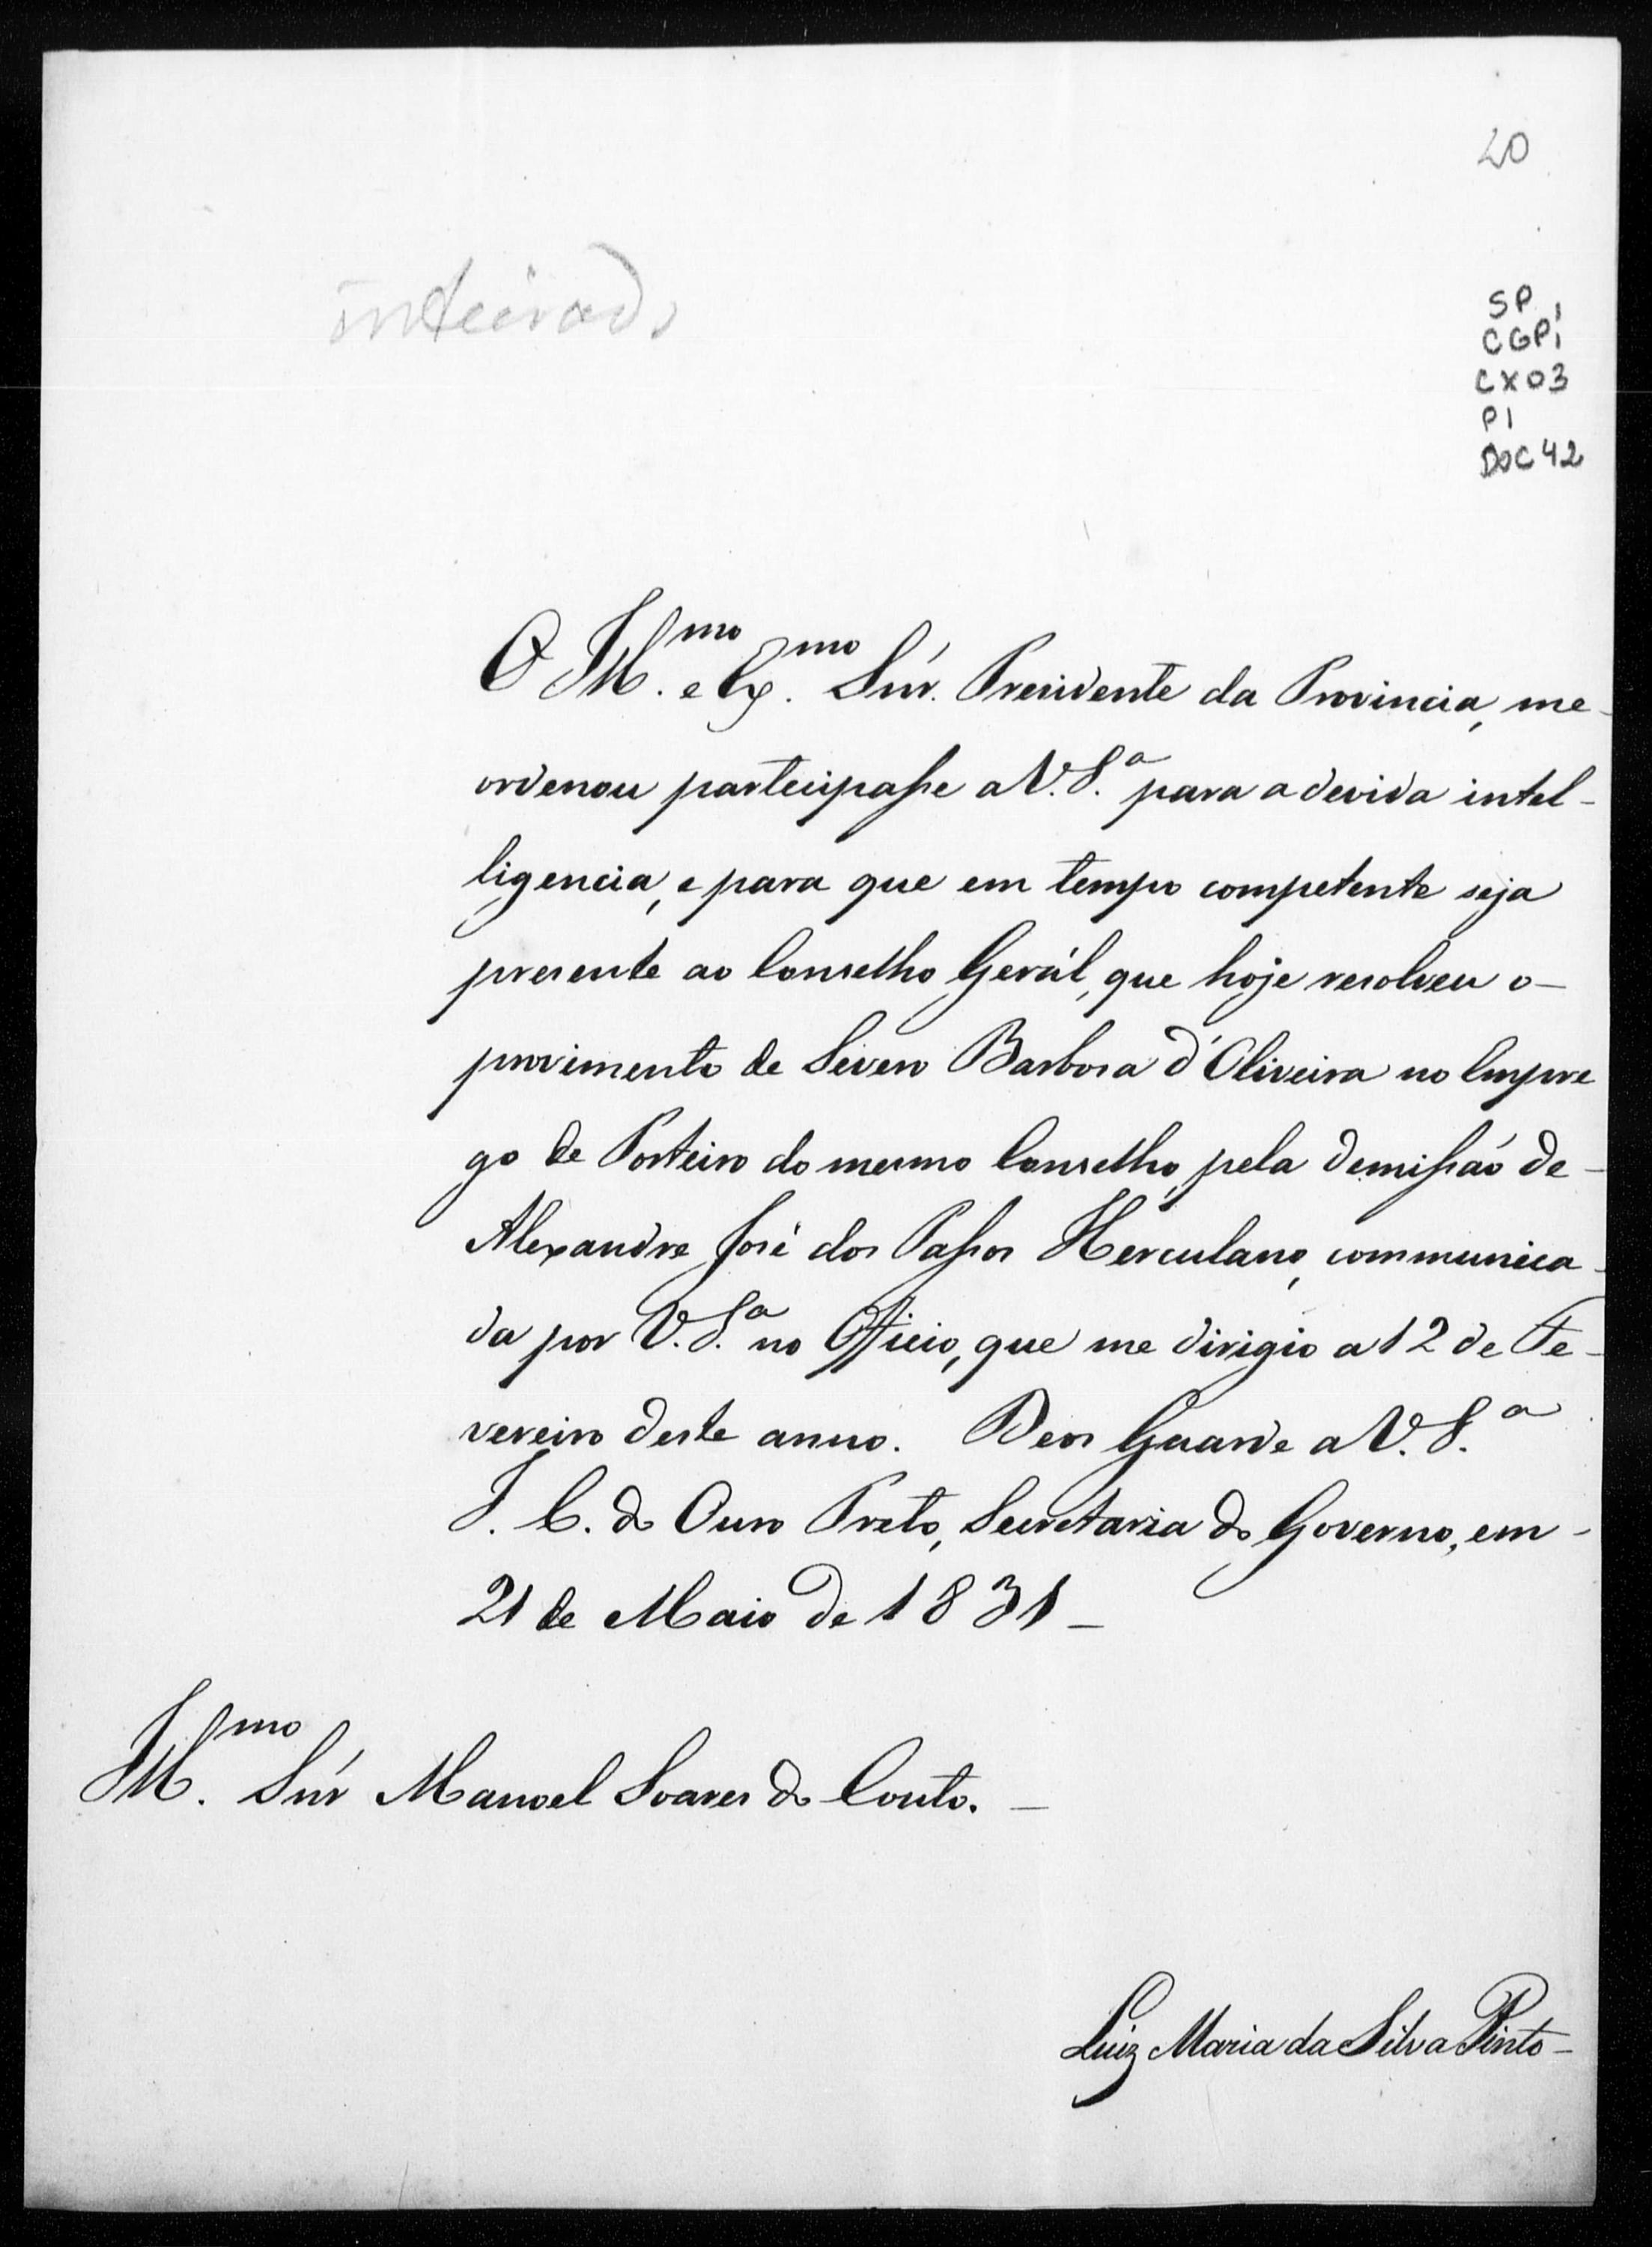 20
inteirado
SP
CGP1
CX03
P1
DOC 42
O Ill.mo e Ex.mo Snr. Presidente da Provincia, me-
ordenou participasse a V. S.a para a devida intel-
ligencia, e para que em tempo competente seja
presente ao Conselho Gerál, que hoje resolveu o-
provimento de Severo Barbosa d'Oliveira no Empre
go de Porteiro do mesmo Conselho, pela demissáo de-
Alexandre José dos Passos Herculano, communica-
da por V. S.a no Officio, que me dirigio a 12 de Fe-
vereiro deste anno. Deos Guarde a V. S.a
I. C. do Ouro Preto, Secretaria do Governo, em-
21 de Maio de 1831-
Ill.mo Snr Manoel Soares do Couto. -
Luiz Maria da Silva Pinto-